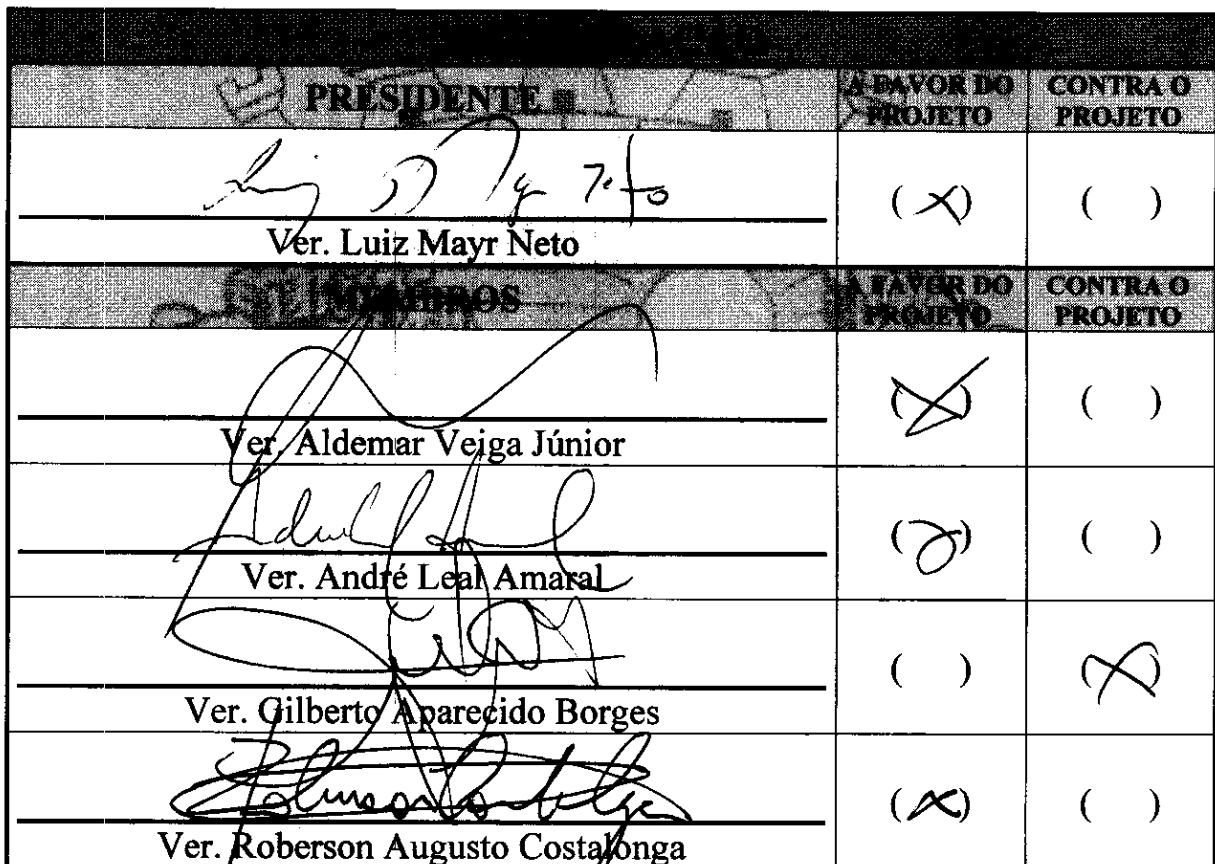 PRESIDENTE
A FAVOR DO PROJETO
CONTRA O PROJETO
( X )
( )
Ver. Luiz Mayr Neto
MEMBROS
A FAVOR DO PROJETO
CONTRA O PROJETO
( X )
( )
Ver. Aldemar Veiga Júnior
( )
Ver. André Leal Amaral
( )
( X )
Ver. Gilberto Aparecido Borges
( X )
( )
Ver. Roberson Augusto Costalonga